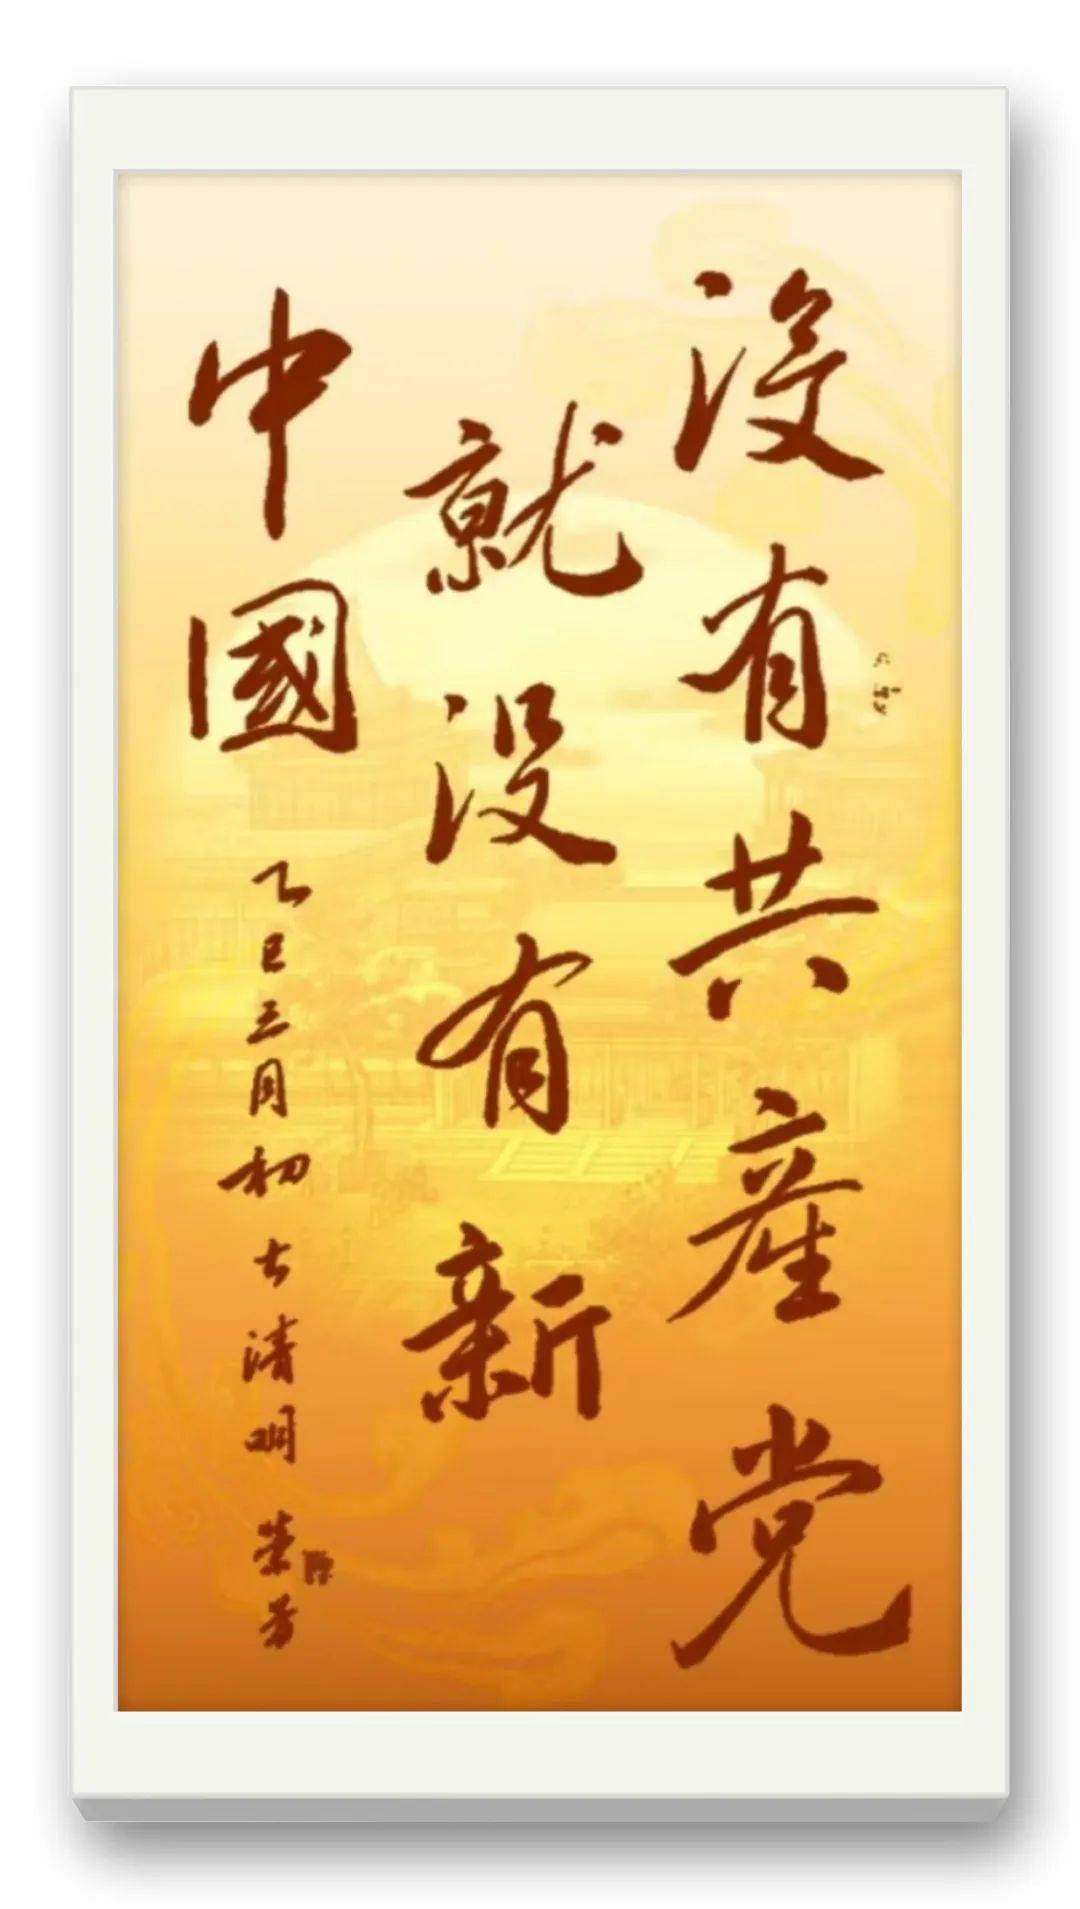 没有共產党
就没有新
中國
乙巳三月初七清明 荣芳